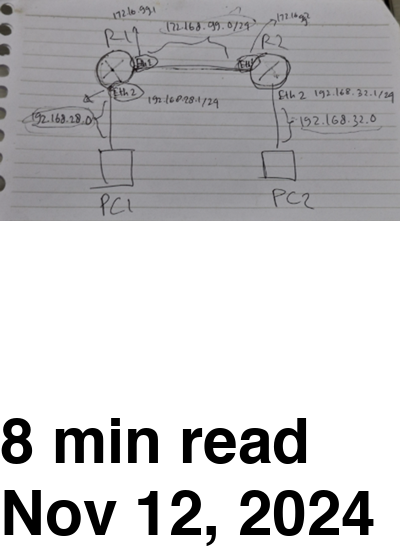 172.16.99.1
172.168.99.0/24
172.16.99.2
R1
R2
Eth1
Eth1
Eth2
192.168.28.1/24
Eth2 192.168.32.1/24
192.168.28.0
192.168.32.0
PC1
PC2
8 min read
Nov 12, 2024